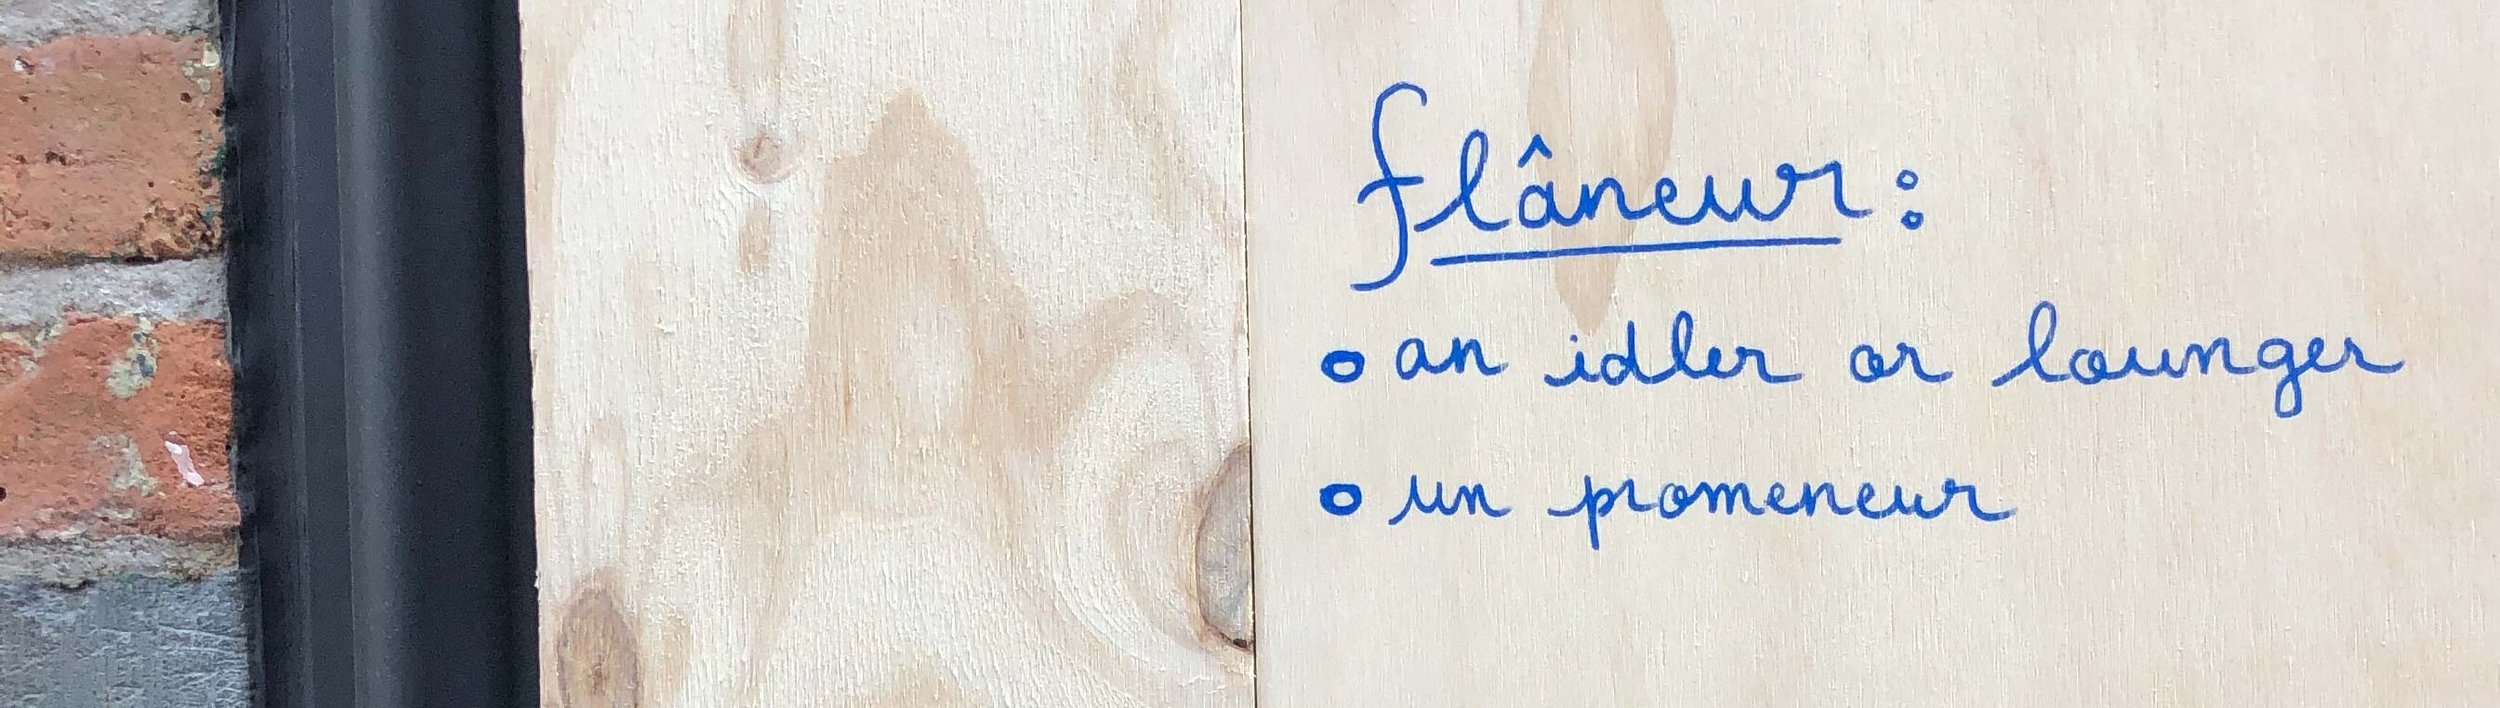 flâneur:
• an idler or lounger
• un promeneur